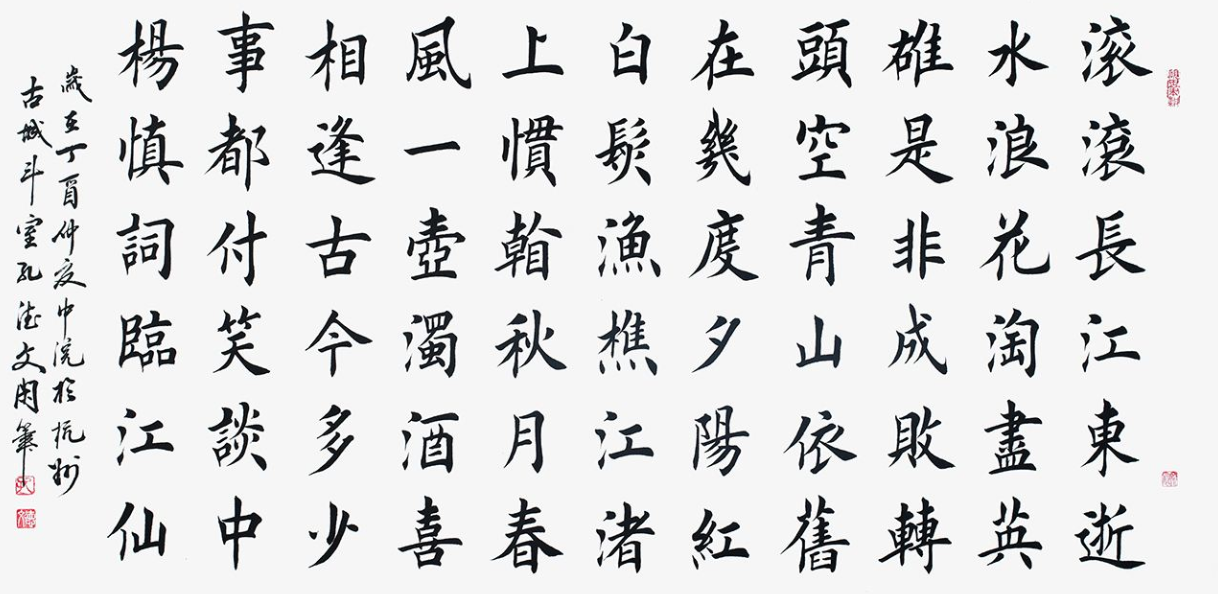 滚滾長江東逝
水浪花淘盡英
雄是非成敗轉
頭空青山依舊
在幾度夕陽紅
白髮漁樵江渚
上慣看秋月春
風一壺濁酒喜
相逢古今多少
事都付笑談中
楊慎詞臨江仙
歲在丁酉仲夏中浣於杭州
古城斗室孔德文筆